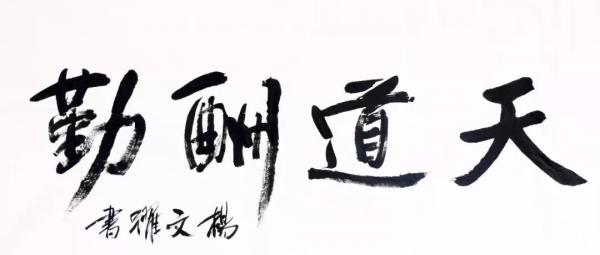 天道酬勤
楊文耀書